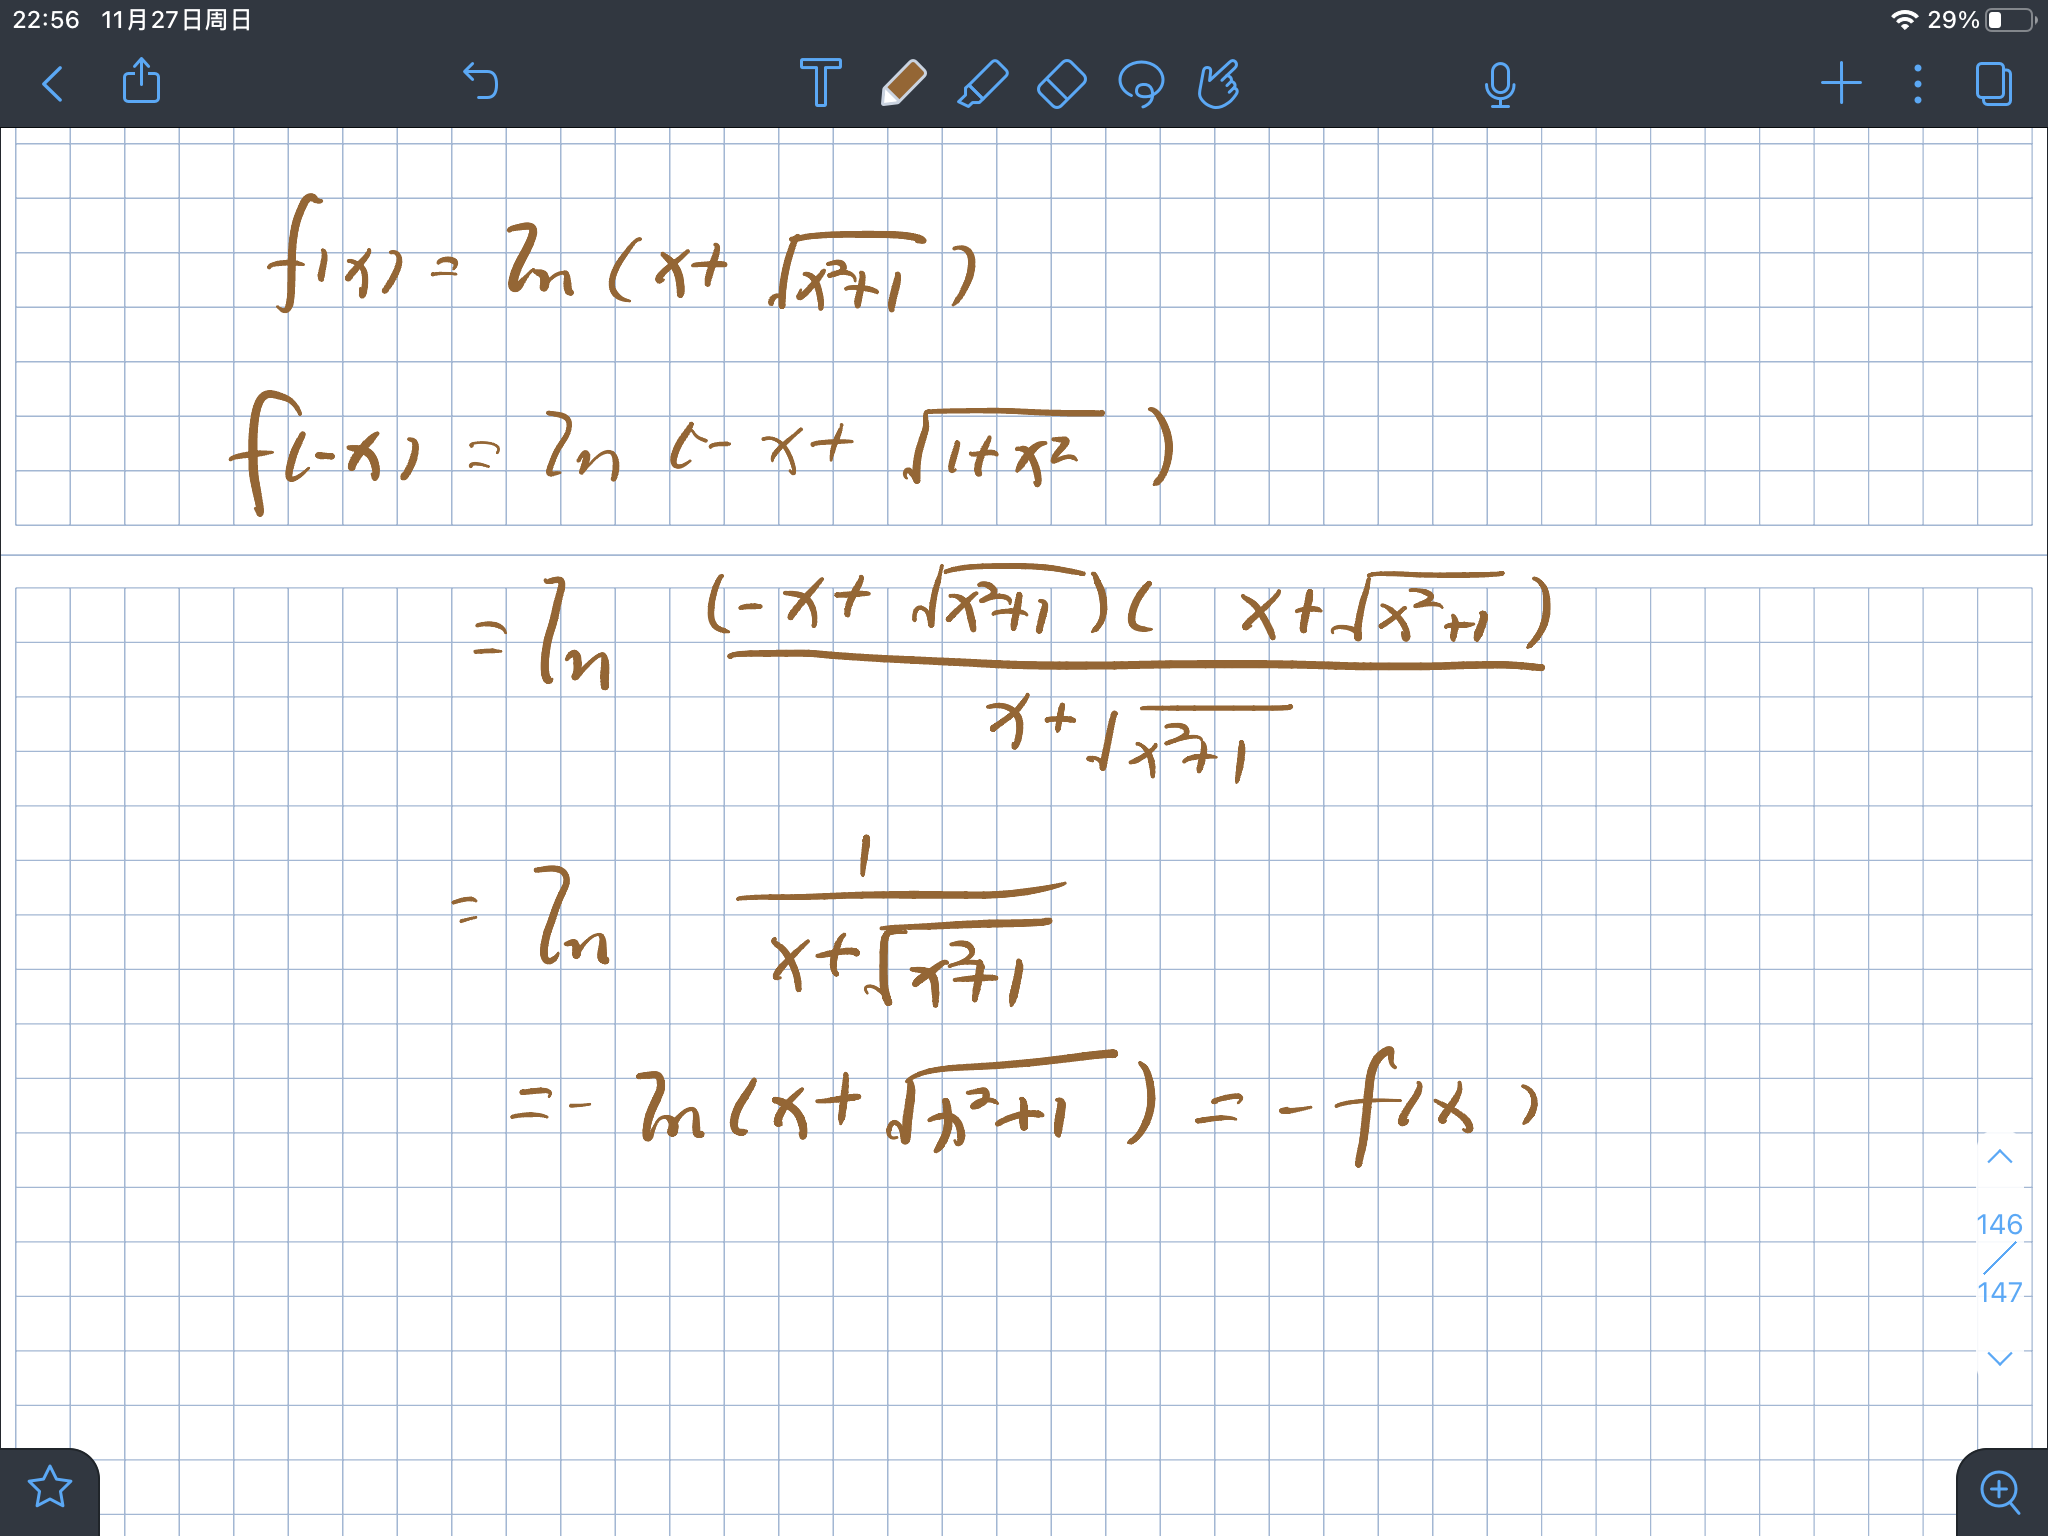 22:56 11月27日周日 29%
f(x) = ln (x + √(x²+1))
f(-x) = ln (-x + √(1+x²))
= ln ((-x + √(x²+1))(x + √(x²+1))) / (x + √(x²+1))
= ln 1 / (x + √(x²+1))
= - ln (x + √(x²+1)) = - f(x)
146
147